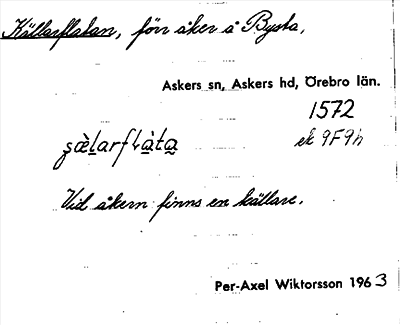 Källarflatan, förr åker å Bysta,
Askers sn, Askers hd, Örebro län.
1572
ek 9F9h
s̨æ̀l̲arfḷà̲ta̲
Vid åkern finns en källare.
Per-Axel Wiktorsson 1963